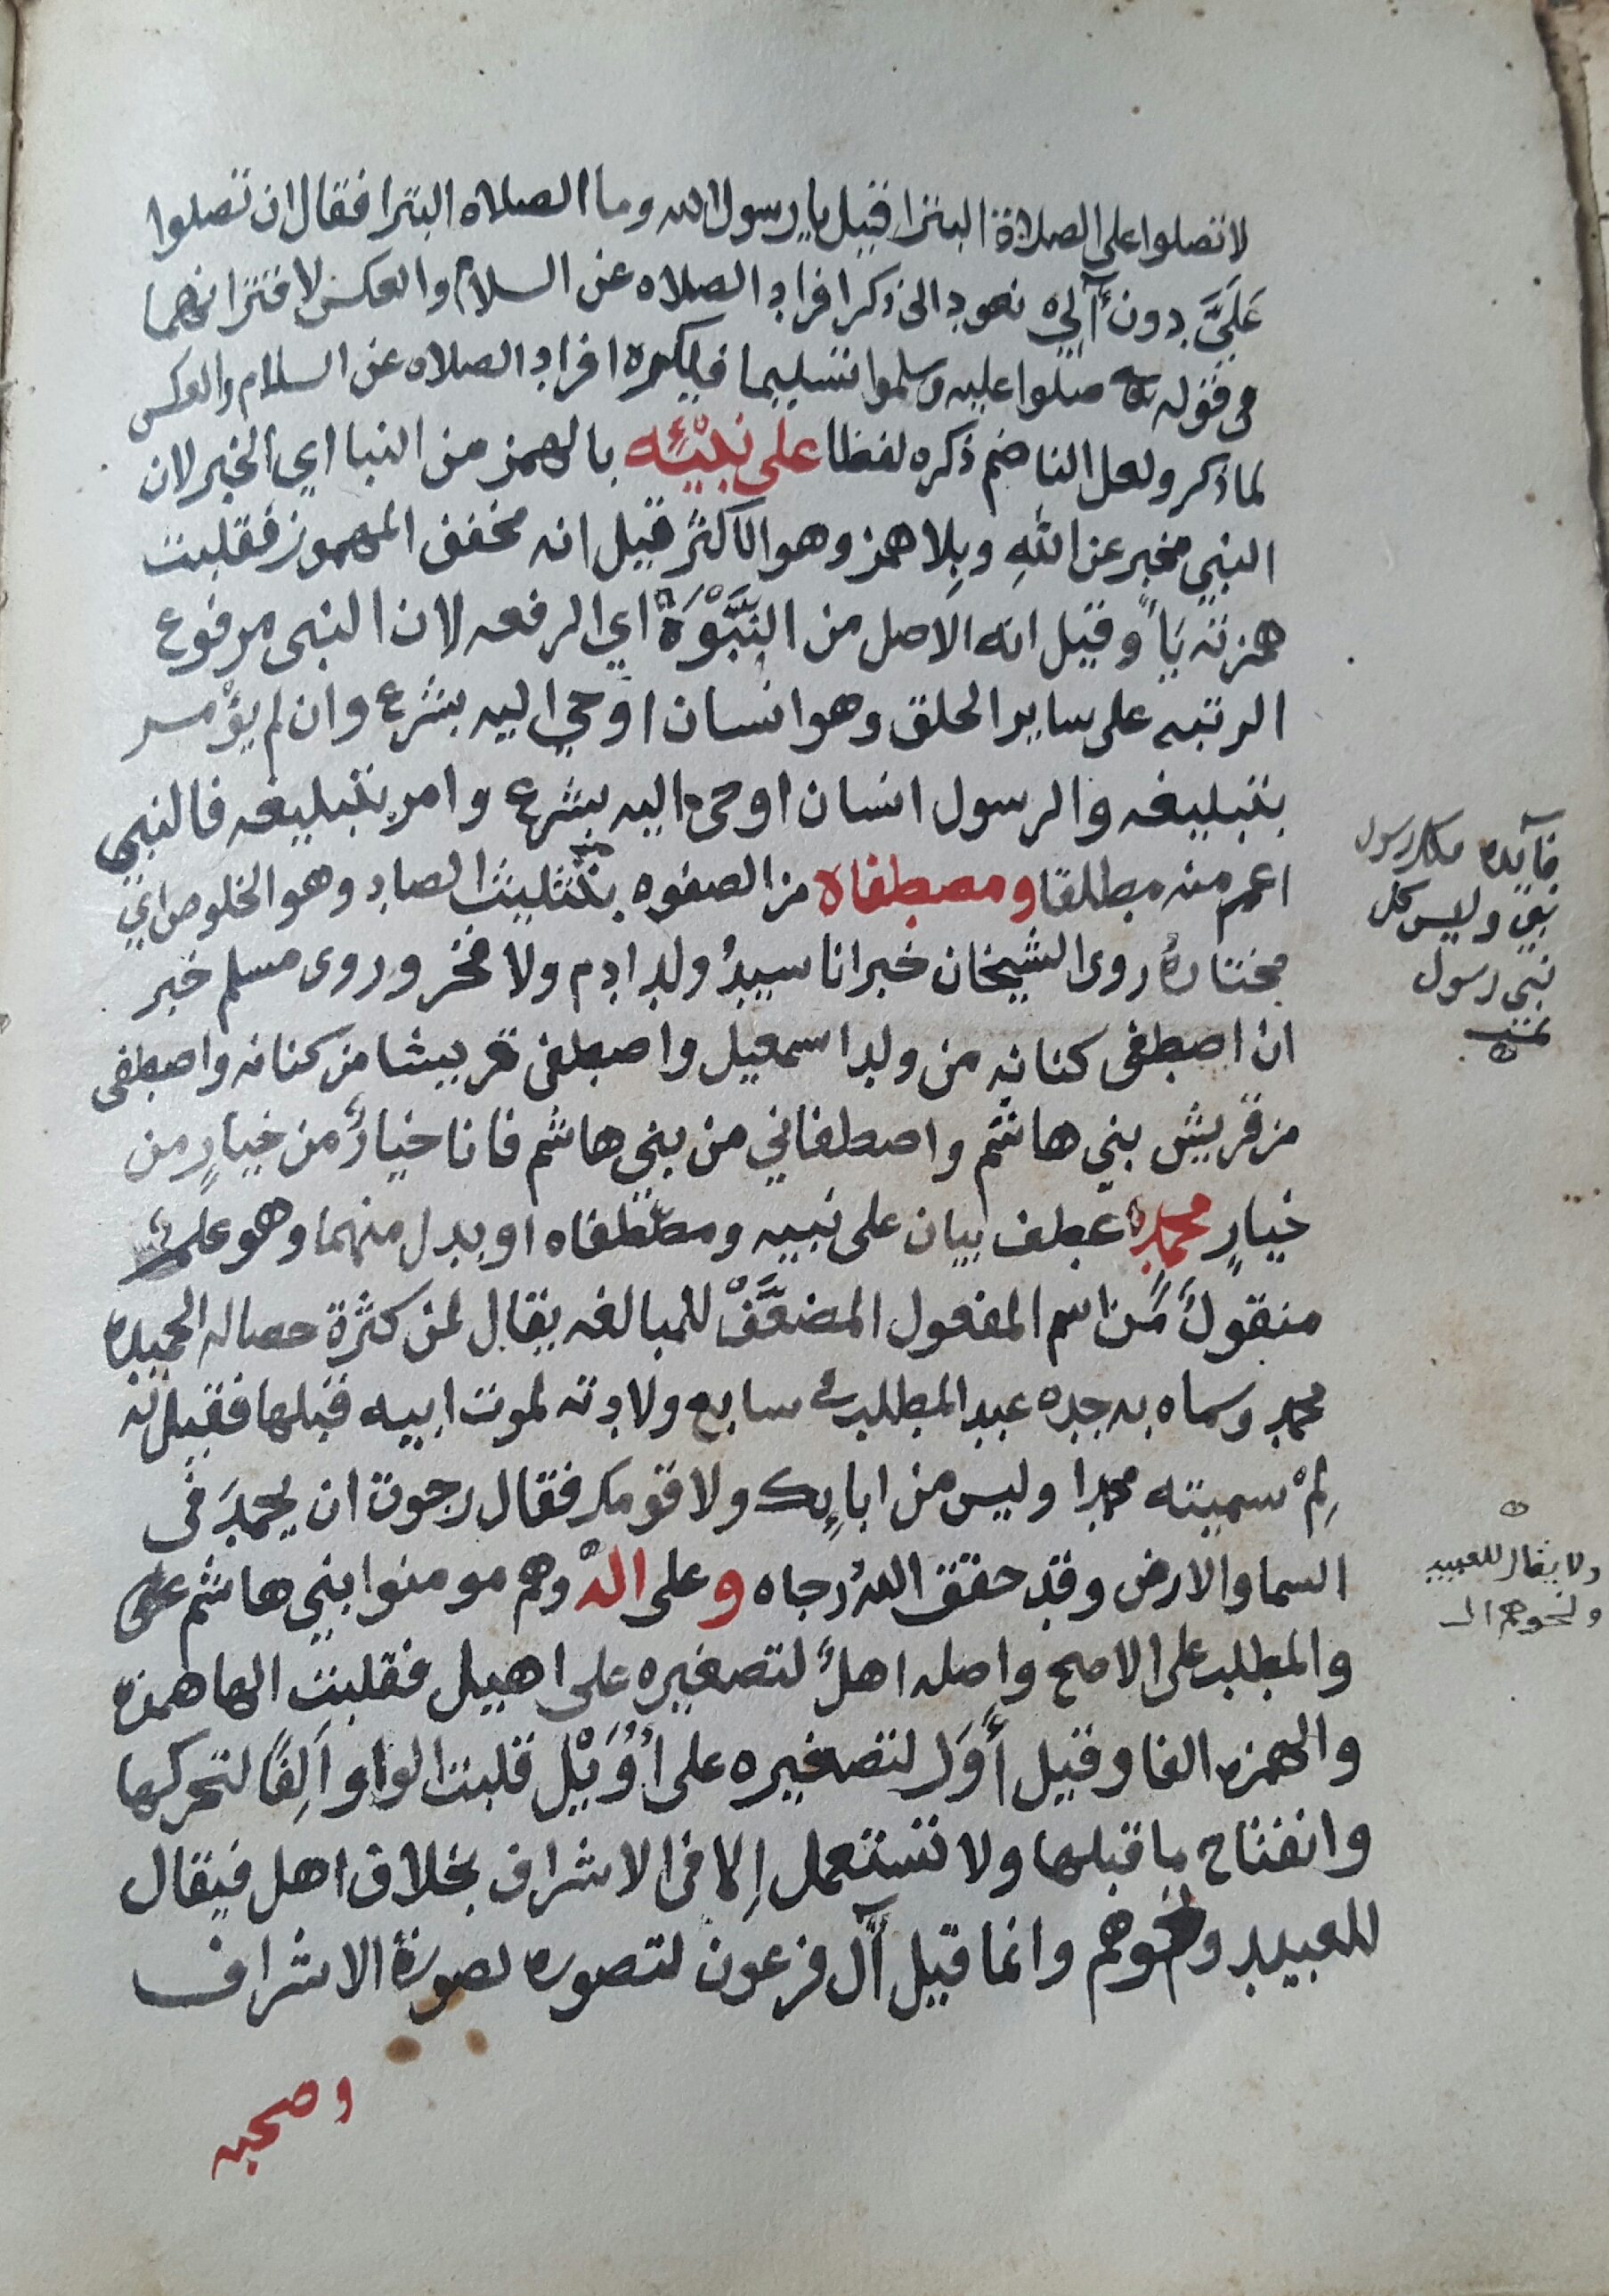 لا تصلوا على الصلاة البترا قيل يا رسول الله وما الصلاه البترا فقال ان تصلوا
عَلَيَّ بدون آلي نعود الى ذكر افراد الصلاه عن السلام والعكس لاقترانهما
في قوله صلوا عليه وسلموا تسليما فيكره افراد الصلاه عن السلام والعكس
لما ذكر ولعل الناضم ذكره لفظا على نبيئه بالهمز من النبا اي الخبر لان
النبي مخبر عن اللهِ وبِلا همز وهو الاكثر قيل انه مخفف المهموز فقلبت
همزته يَاً وقيل انه الاصل من النَبَّوْةَ اي الرفعه لان النبى مرفوع
الرتبه على ساير الخلق وهو انسان اوحي اليه بشرع وان لم يؤمر
بتبليغه والرسول انسان اوحى اليه بشرع وامر بتبليغه فالنبى
اعم منه مطلقا ومصطفاه من الصفوه بتثليث الصاد وهو الخلوص اي
مختاره روى الشيخان خبر انا سيدُ ولد ادم ولا فخر وروى مسلم خبر
ان اصطفى كنانه من ولد اسمعيل واصطفى قريشا من كنانه واصطفى
من قريش بني هاشم واصطفاني من بني هاشم فانا خيارٌ من خيارٍ من
خيارٍ محمد عطف بيان على نبيه ومصطفاه او بدل منهما وهو علم
منقولٌ مَن اسم المفعول المضعَّفْ للمبالغه يقال لمن كثرة خصاله الحميده
محمد وسماه به جده عبد المطلب في سابع ولادته لموت ابيه قبلها فقيل له
لِمْ سميته محمدا وليس من ابايِك ولا قومك فقال رجوت ان يحمدَ فى
السما والارض وقد حقق اللهُ رجاه وعلى اله وهم مومنوا بني هاشم
والمطلب على الاصح واصله اهلٌ لتصغيره على اهيل فقلبت الها همزه
والهمزه الفا وقيل أَوَل لتصغيره على أُوَيْل قلبت الواو اَلِفًا لتحركها
وانفتاح ما قبلها ولا تستعمل إلا فى الاشراف بخلاف اهل فيقال
للعبيد ونحوهم وانما قيل آل فرعون لتصوره بصورة الاشراف
وصحبه
فآيده كل رسول
نبي وليس كل
نبي رسول
تمت
ولا يقال للعبيد
ونحوهم ال